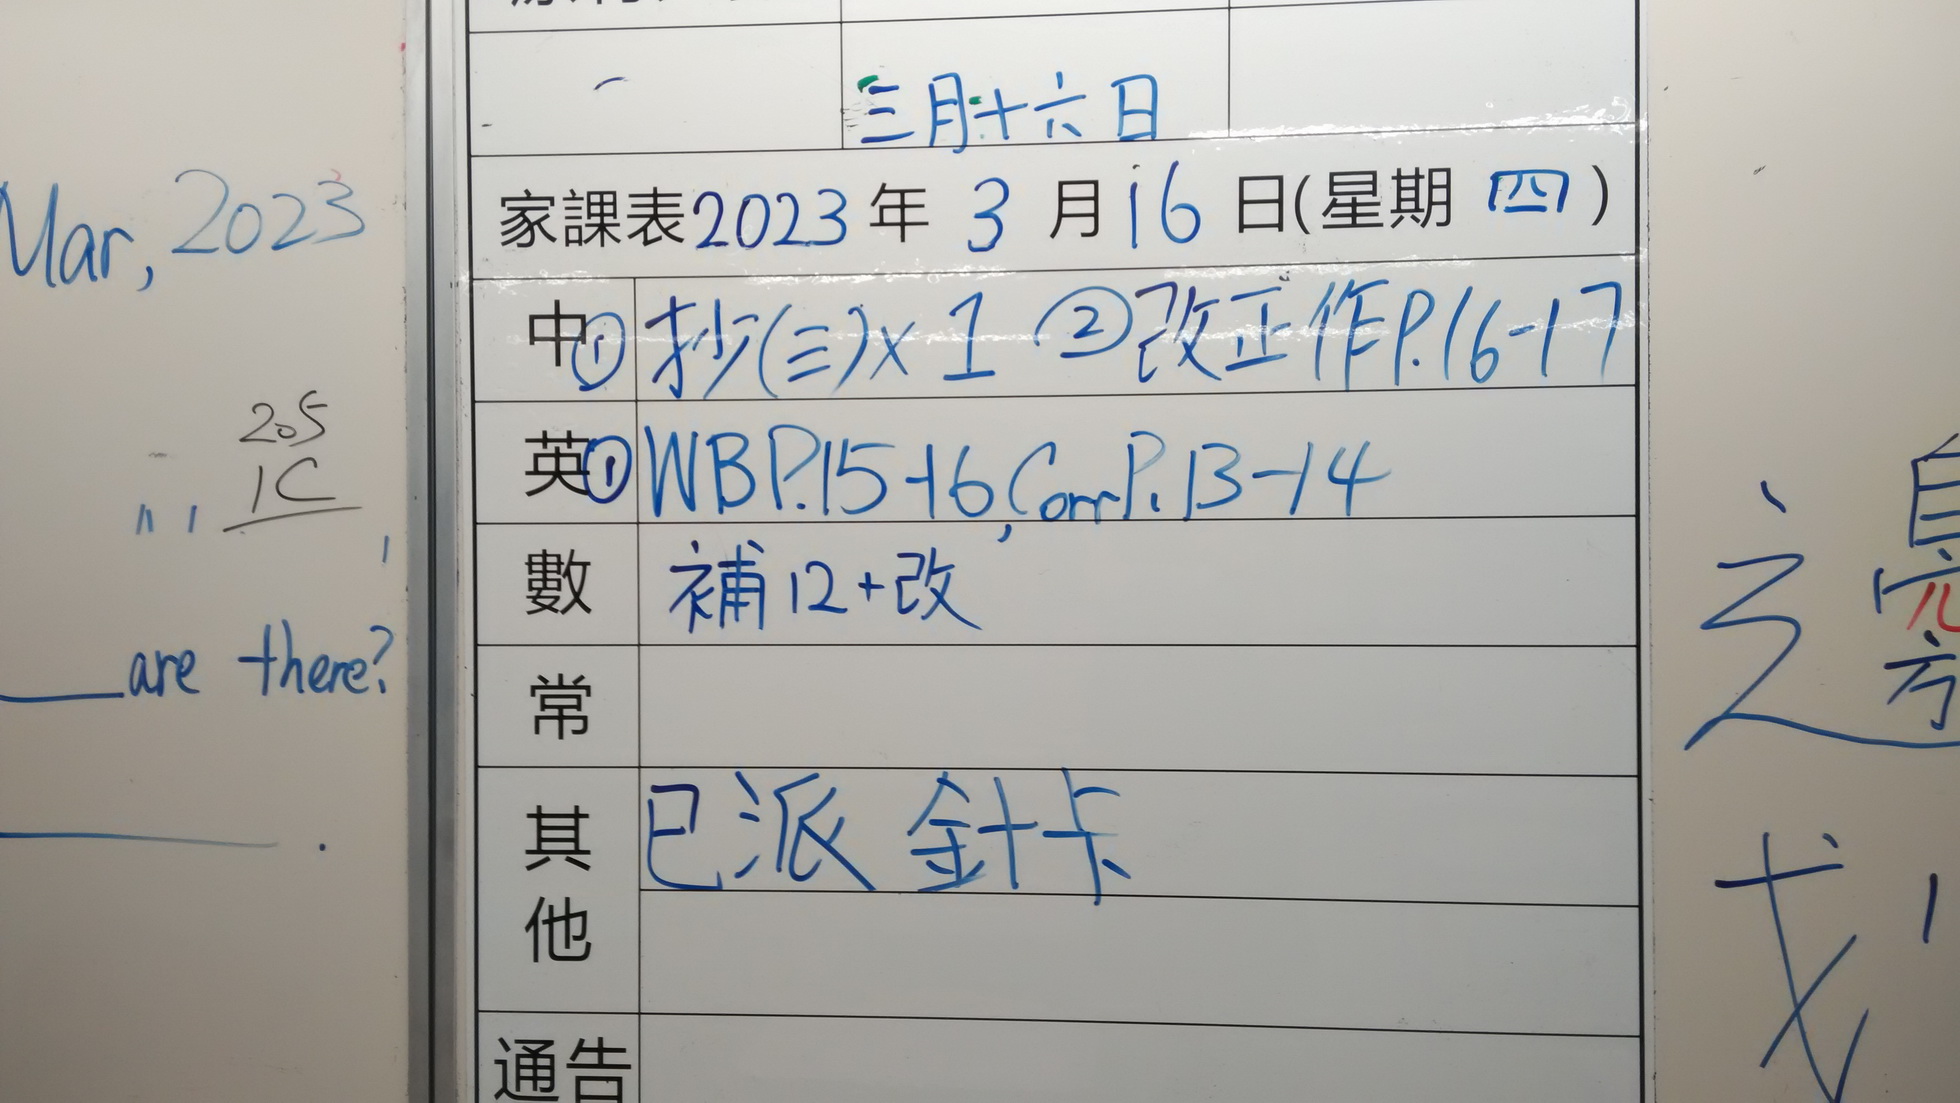 三月十六日
家課表2023年3月16日(星期四)
中①抄(三)×1 ②改正作P.16-17
英①WBP.15-16, Corr P.13-14
數 補12+改
常
其他 已派 針卡
通告
Mar, 2023
205
1C
are there?